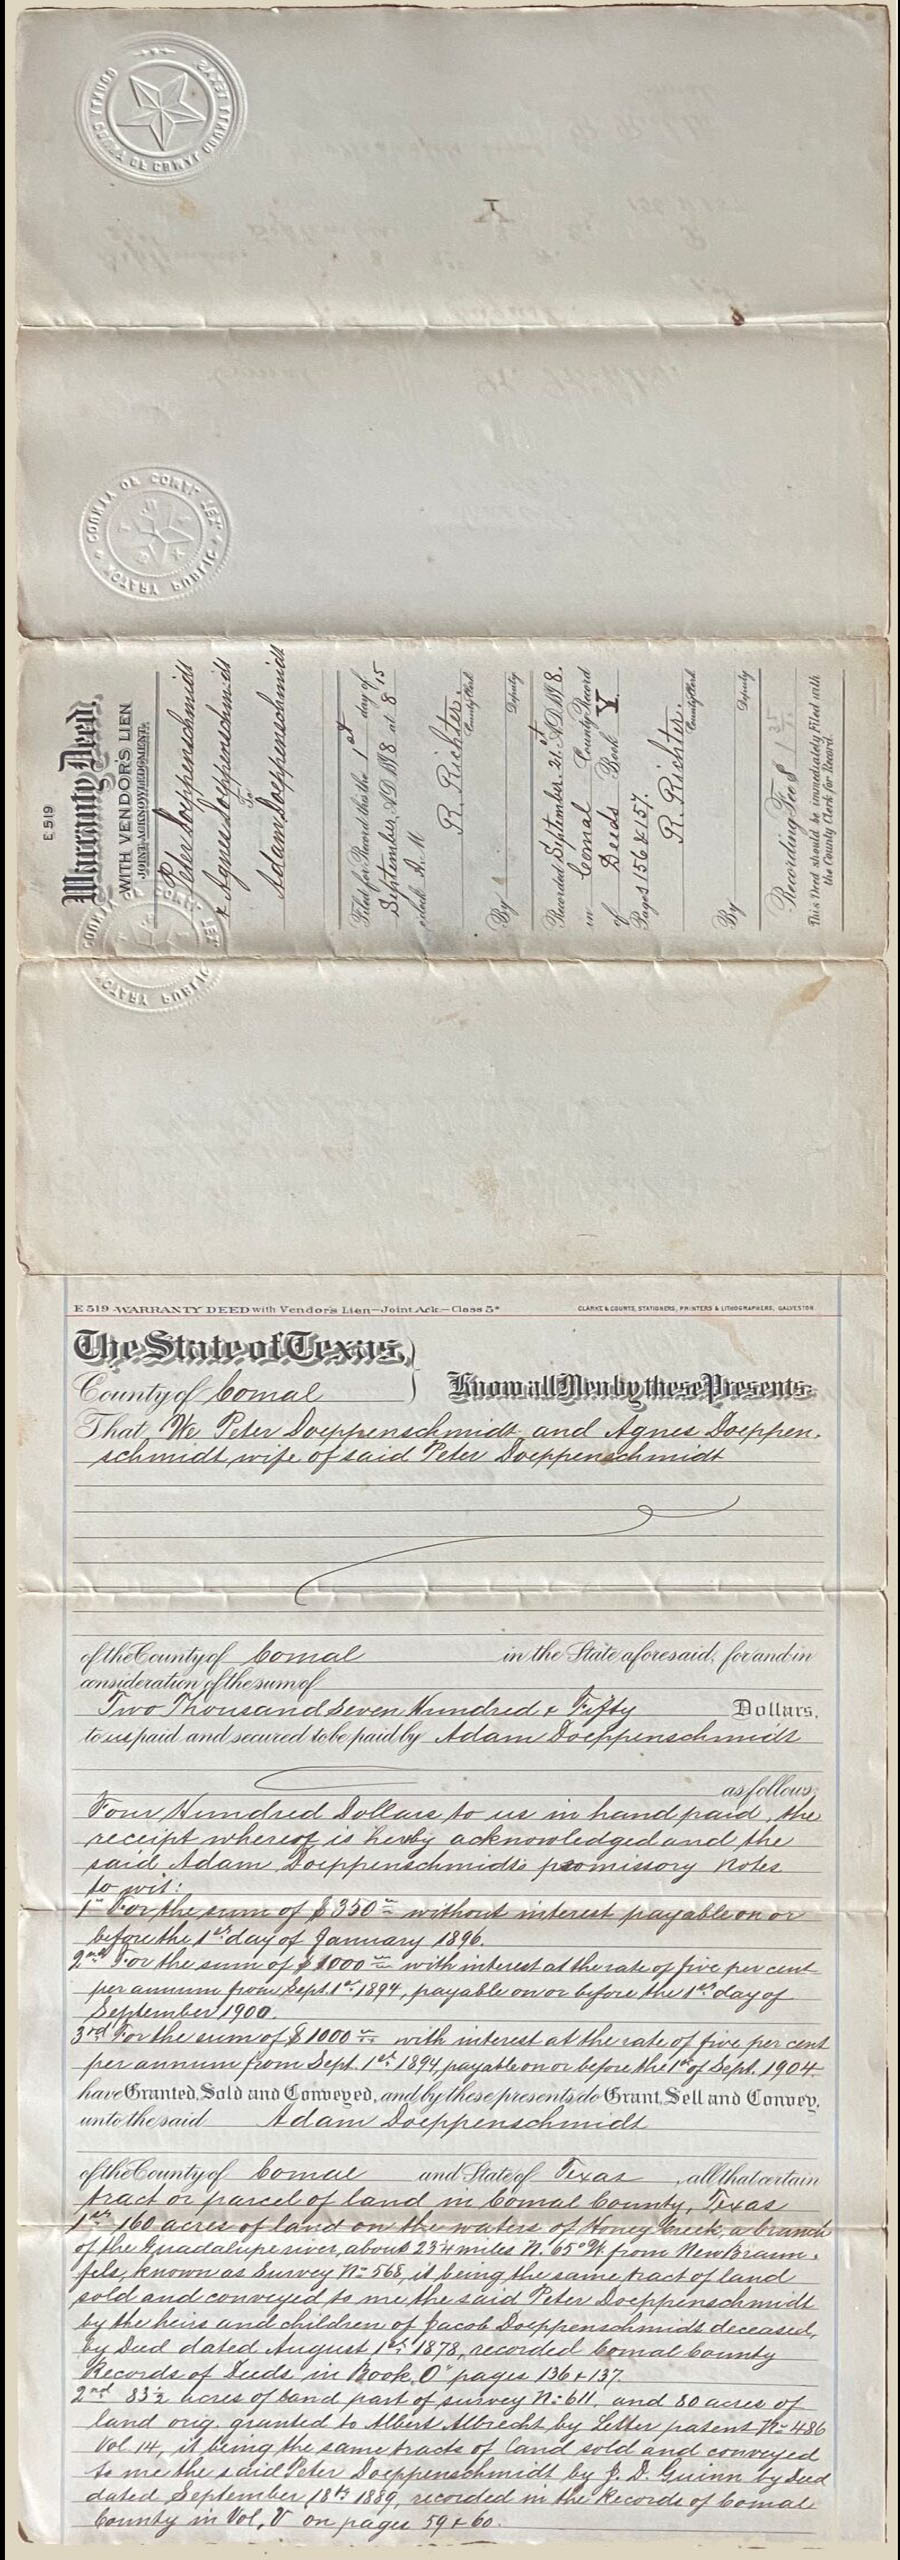 COUNTY COURT OF COMAL COUNTY TEXAS
NOTARY PUBLIC COUNTY OF COMAL TEX
E 519
Warranty Deed,
WITH VENDOR'S LIEN
JOINT ACKNOWLEDGMENT.
Peter Doeppenschmidt
& Agnes Doeppenschmidt
To
Adam Doeppenschmidt
Filed for Record this the 1st day of
September, A.D. 1898 at 8 15
o'clock A. M
R. Richter.
County Clerk
By
Deputy
Recorded September. 21st A.D. 1898.
in Comal County Record
of Deeds Book V.
Pages 156 & 157.
R. Richter.
County Clerk
By
Deputy
Recording Fee $ 1
This Deed should be immediately Filed with
the County Clerk for Record.
NOTARY PUBLIC COUNTY OF COMAL TEX
E 519 WARRANTY DEED with Vendor's Lien—Joint Ack.—Class 5* CLARKE & COURTS, STATIONERS, PRINTERS & LITHOGRAPHERS, GALVESTON
The State of Texas,
County of Comal Know all Men by these Presents:
That We Peter Doeppenschmidt and Agnes Doeppen-
schmidt wife of said Peter Doeppenschmidt
of the County of Comal in the State aforesaid, for and in
consideration of the sum of
Two Thousand Seven Hundred & Fifty Dollars,
to us paid and secured to be paid by Adam Doeppenschmidt
as follows:
Four Hundred Dollars to us in hand paid, the
receipt whereof is herby acknowledged and the
said Adam Doeppenschmidts promissory notes
to wit:
1st For the sum of $350 without interest payable on or
before the 1st day of January 1896.
2nd For the sum of $1000 with interest at the rate of five per cent
per annum from Sept. 1st 1894, payable on or before the 1st day of
September 1900.
3rd For the sum of $1000 with interest at the rate of five per cent
per annum from Sept. 1st 1894 payable on or before the 1st of Sept. 1904
have Granted, Sold and Conveyed, and by these presents do Grant, Sell and Convey,
unto the said Adam Doeppenschmidt
of the County of Comal and State of Texas, all that certain
tract or parcel of land in Comal County, Texas
1st 160 acres of land on the waters of Honey Creek, a branch
of the Guadalupe river, about 23 1/4 miles N. 65° W. from New Braun-
fels, known as Survey No 568, it being the same tract of land
sold and conveyed to me the said Peter Doeppenschmidt
by the heirs and children of Jacob Doeppenschmidt deceased,
by Deed dated August 1st 1878, recorded Comal County
Records of Deeds in Book "O" pages 136 & 137.
2nd 83 1/2 acres of land part of survey No: 611, and 80 acres of
land orig. granted to Albert Albrecht by Letter patent No 486
Vol 14, it being the same tracts of land sold and conveyed
to me the said Peter Doeppenschmidt by J. D. Guinn by Deed
dated September 18th 1889, recorded in the Records of Comal
County in Vol, V on pages 59 & 60.